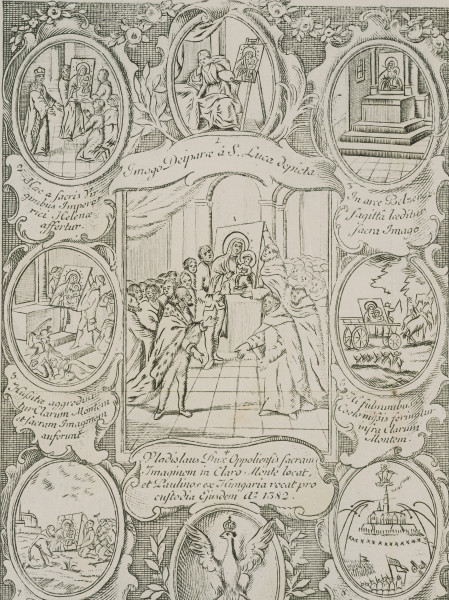 1.
Imago Deiparæ à S. Luca depicta
2. Hæc a sacris Vir
ginibus Impera
trici Helenæ
affertur.
In arce Belzensi
Sagitta læditur
sacra Imago
Hussitæ aggrediun
tur Clarum Montem
et sacram Imaginem
auferunt
fulminibus
infra Clarum
Montem.
Vladislaus Dux Oppoliensis sacram
Imaginem in Claro Monte locat,
et Paulinos ex Hungaria vocat pro
custodia Ejusdem Aº 1382.